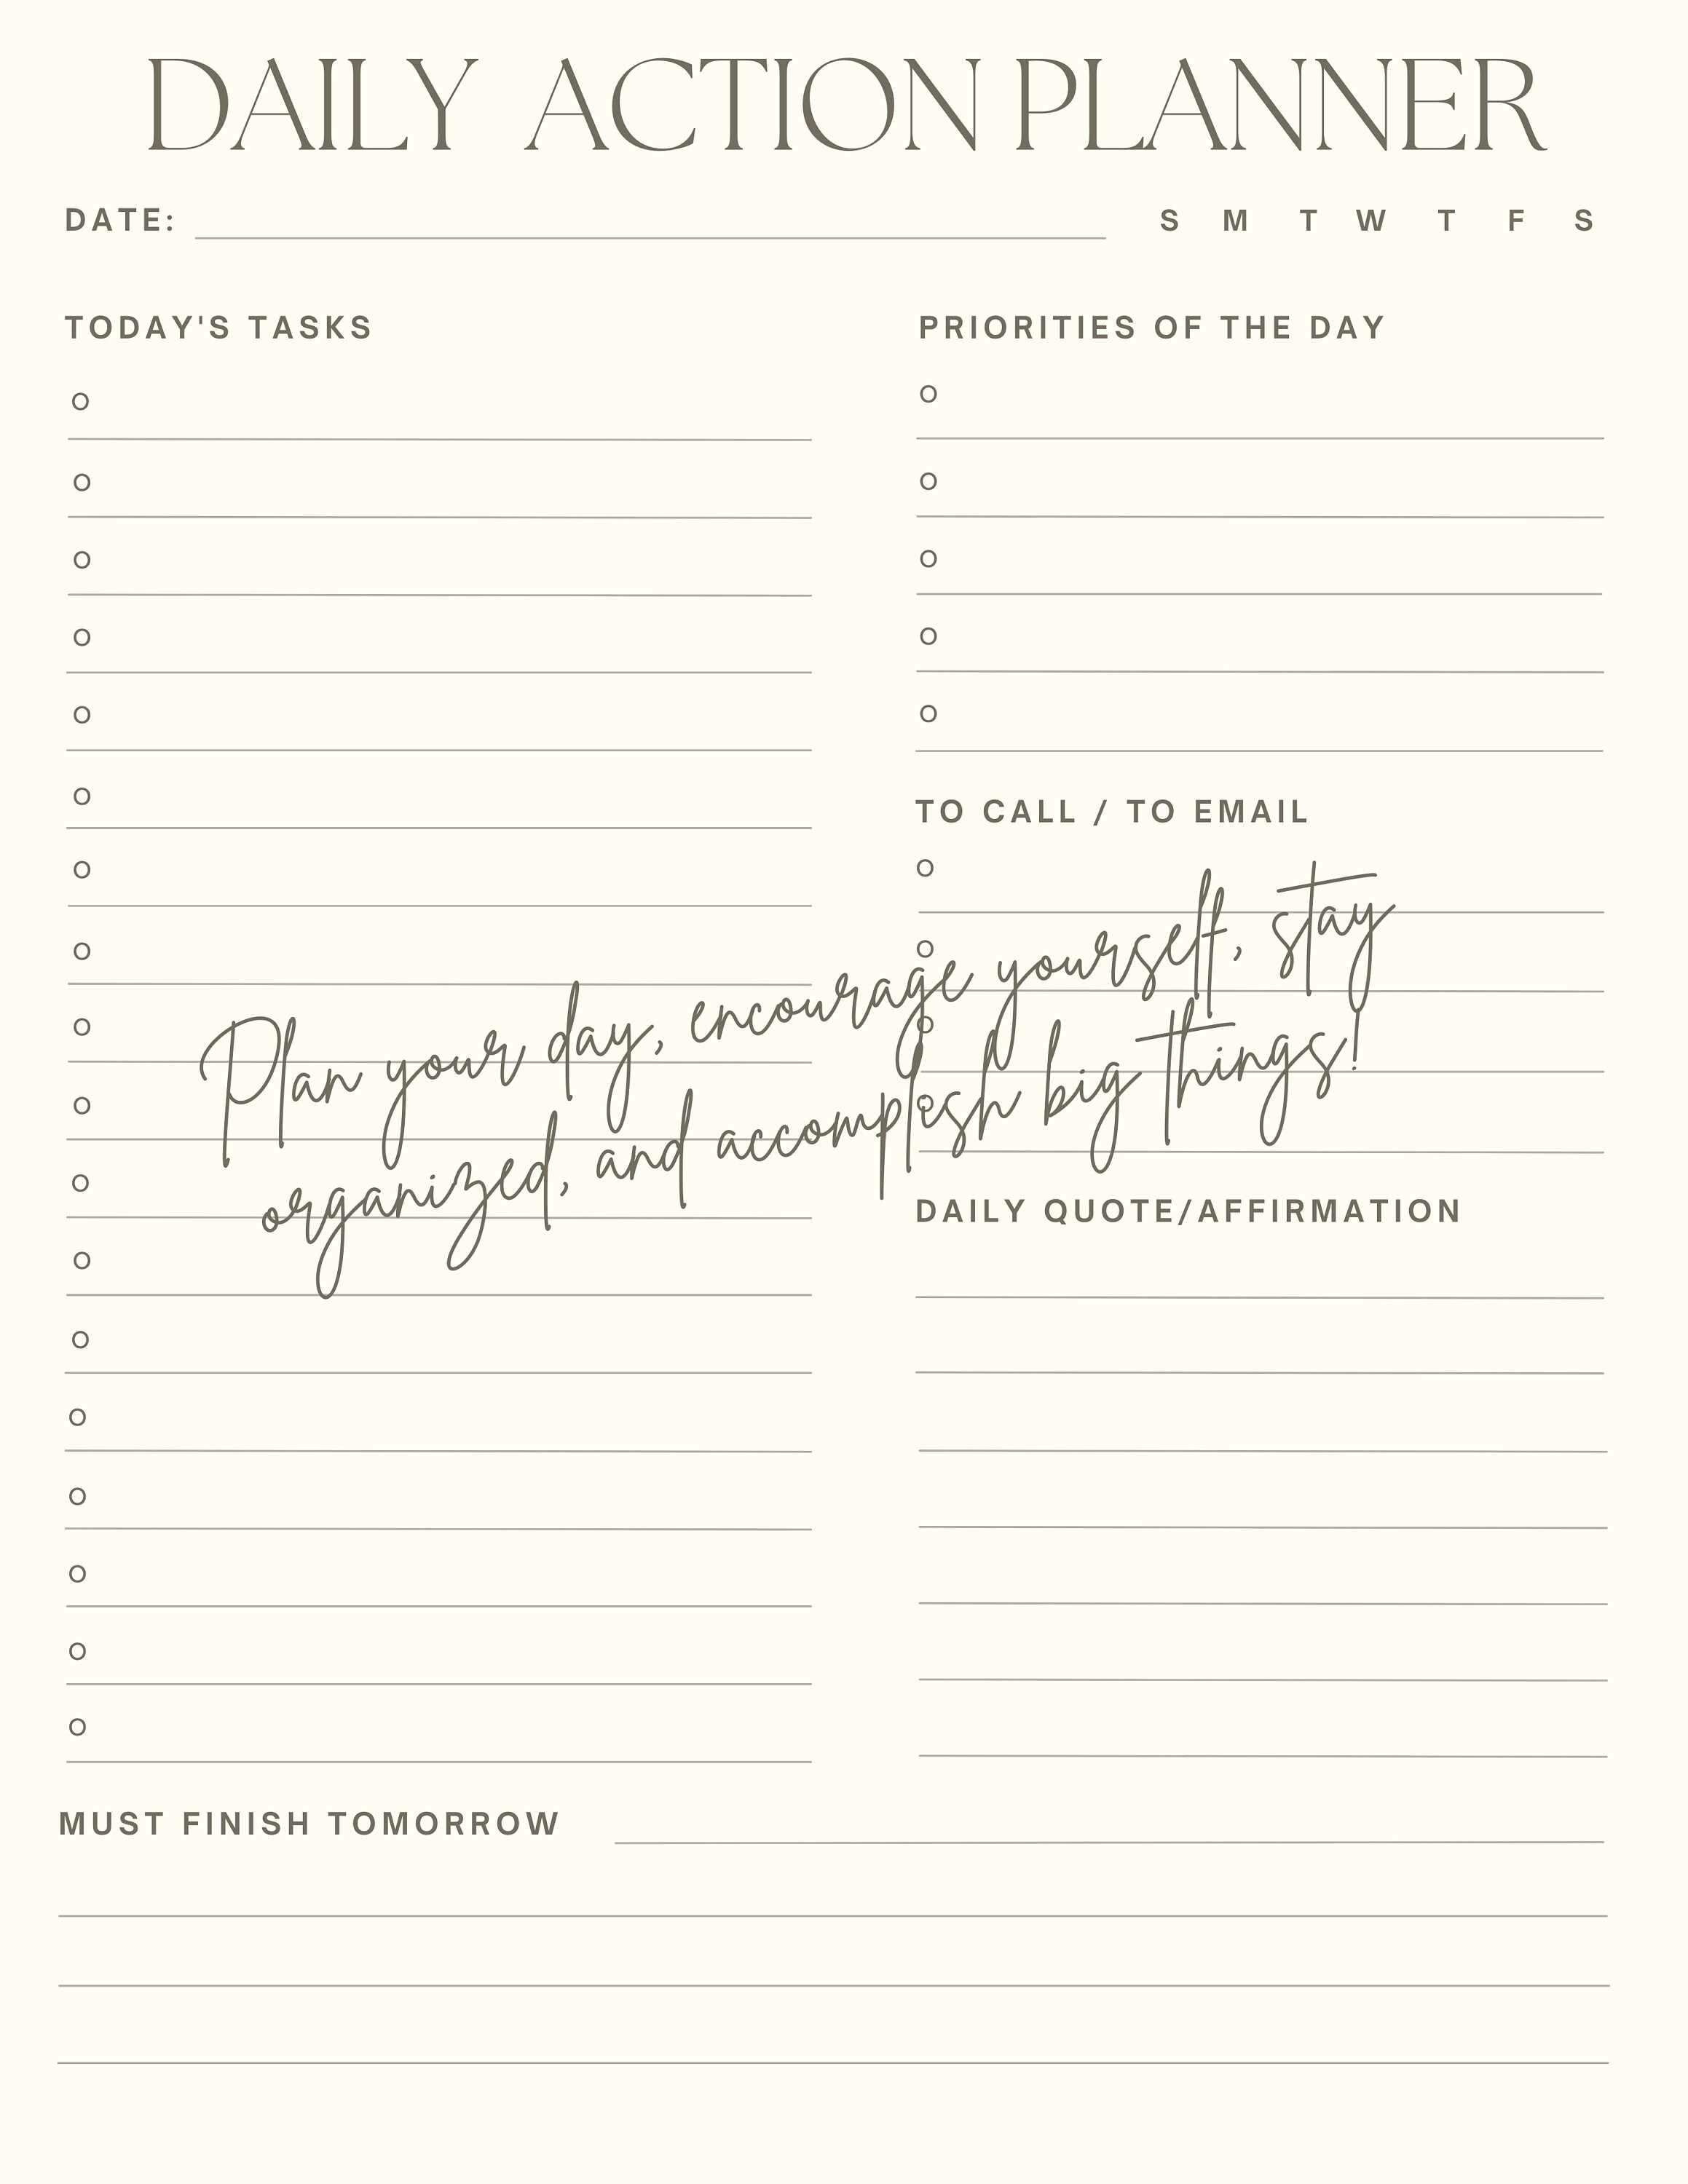 DAILY ACTION PLANNER
DATE: S M T W T F S
TODAY'S TASKS
PRIORITIES OF THE DAY
TO CALL / TO EMAIL
Plan your day, encourage yourself, stay
organized, and accomplish big things!
DAILY QUOTE/AFFIRMATION
MUST FINISH TOMORROW